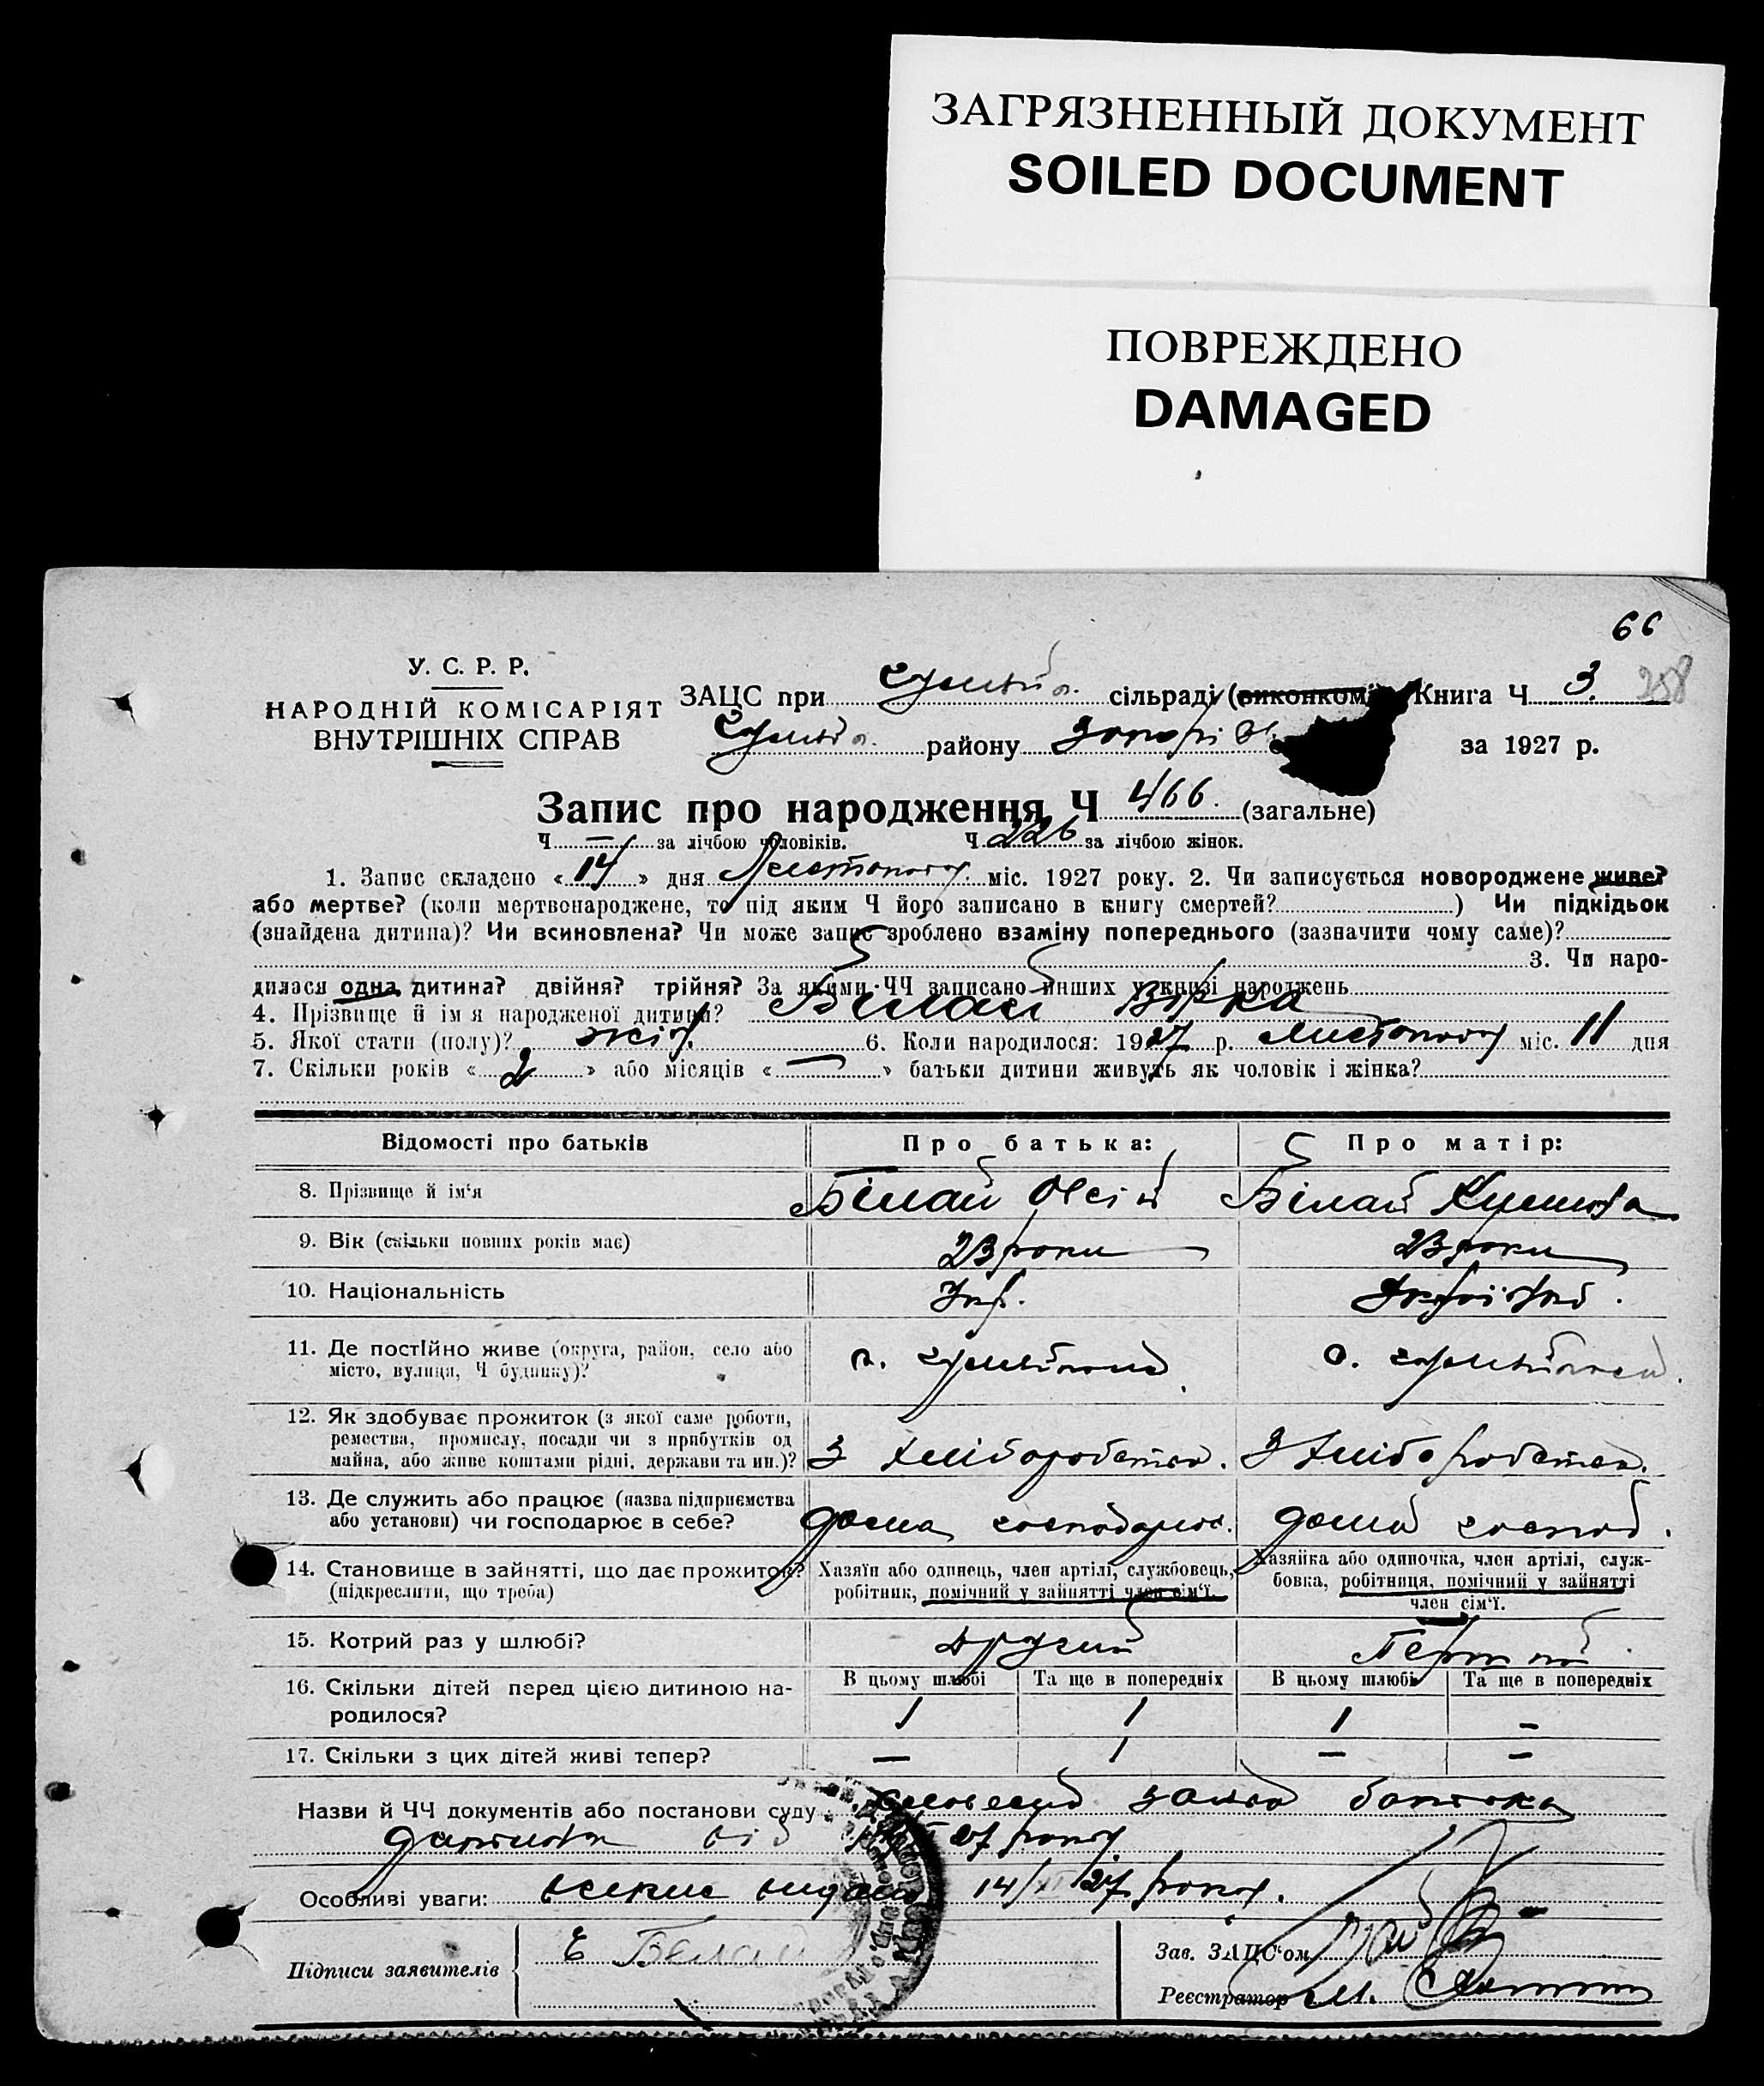 ЗАГРЯЗНЕННЫЙ ДОКУМЕНТ
SOILED DOCUMENT
ПОВРЕЖДЕНО
DAMAGED
66
258
У. С. Р. Р.
НАРОДНІЙ КОМІСАРІЯТ
ВНУТРІШНІХ СПРАВ
ЗАЦС при сільраді (виконкомі) Книга Ч 3.
району за 1927 р.
Запис про народження Ч 466. (загальне)
Ч — за лічбою чоловіків. Ч 226 за лічбою жінок.
1. Запис складено « 14 » дня Листопад. міс. 1927 року. 2. Чи записується новороджене живе?
або мертве? (коли мертвонароджене, то під яким Ч його записано в книгу смертей? ) Чи підкідьок
(знайдена дитина)? Чи всиновлена? Чи може запис зроблено взаміну попереднього (зазначити чому саме)?
3. Чи наро-
дилася одна дитина? двійня? трійня? За якими ЧЧ записано инших у книзі народжень
4. Прізвище й ім я народженої дитини? Білай
5. Якої стати (полу)? жін. 6. Коли народилося: 1927 р. листопад міс. 11 дня
7. Скільки років « 2 » або місяців « — » батьки дитини живуть як чоловік і жінка?
Відомості про батьків Про батька: Про матір:
8. Прізвище й ім'я Білай Овсій Білай
9. Вік (скільки повних років має) 23 роки 23 роки
10. Національність Укр.
11. Де постійно живе (округа, район, село або
місто, вулиця, Ч будинку)?
12. Як здобуває прожиток (з якої саме роботи,
ремества, промислу, посади чи з прибутків од
майна, або живе коштами рідні, держави та ин.)? З хліборобства. З хліборобства.
13. Де служить або працює (назва підприємства
або установи) чи господарює в себе? дома господарює. дома господ.
14. Становище в зайнятті, що дає прожиток? Хазяїн або одинець, член артілі, службовець, Хазяйка або одиночка, член артілі, служ-
(підкреслити, що треба) робітник, помічний у зайнятті член сім'ї. бовка, робітниця, помічний у зайнятті
член сім'ї.
15. Котрий раз у шлюбі? другий Перший
В цьому шлюбі Та ще в попередніх В цьому шлюбі Та ще в попередніх
16. Скільки дітей перед цією дитиною на-
родилося? 1 1 1 —
17. Скільки з цих дітей живі тепер? — 1 — —
Назви й ЧЧ документів або постанови суду словесна заява батька
від 27 року
Особливі уваги: видано 14/XI 27 року.
Підписи заявителів Е Белай
Зав. ЗАЦС'ом
Реєстратор М.